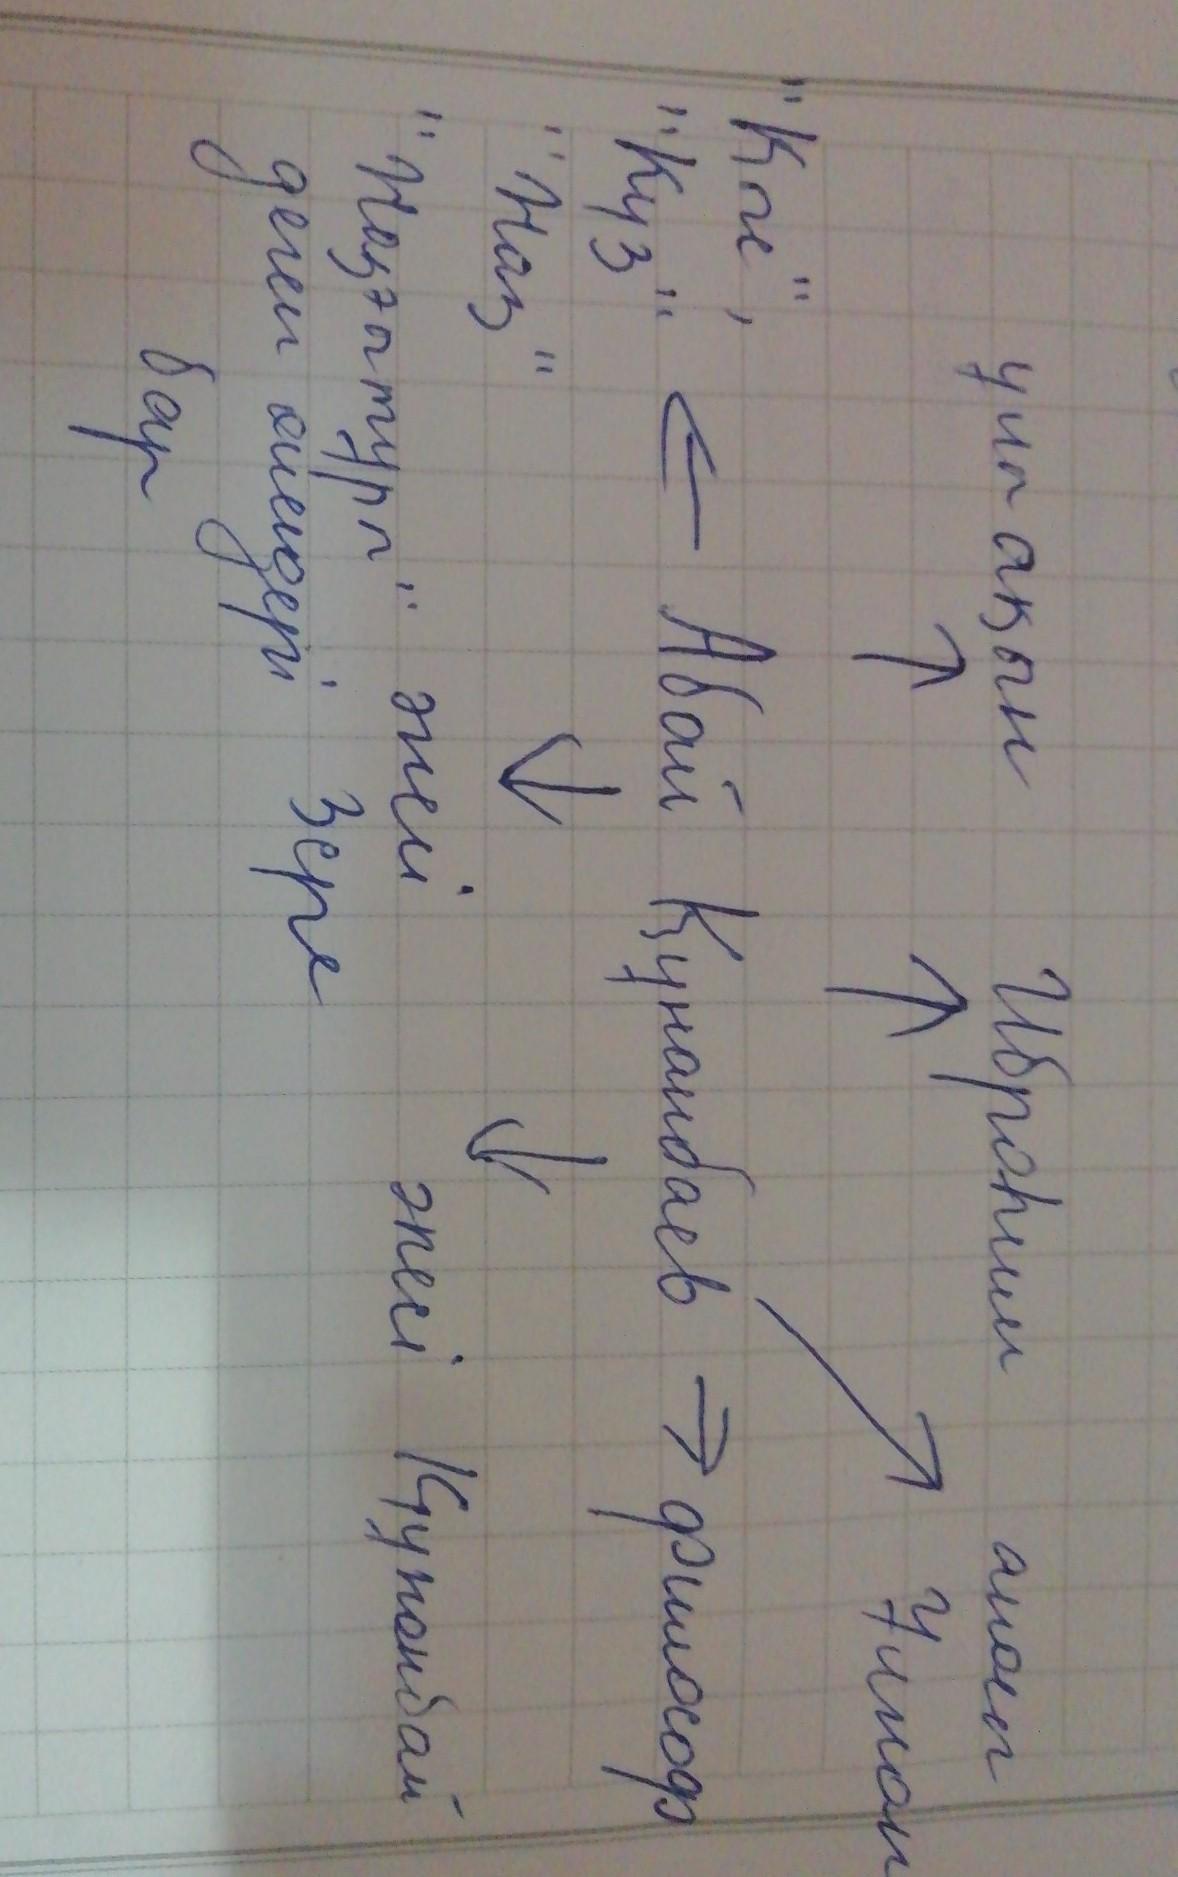 ұлы ақын Ибраһим анасы
Ұлжан
"Қыс",
"Күз" Абай Құнанбаев философ
"Жаз"
"Жазғытұры" әжесі әкесі Құнанбай
деген өлеңдері Зере
бар